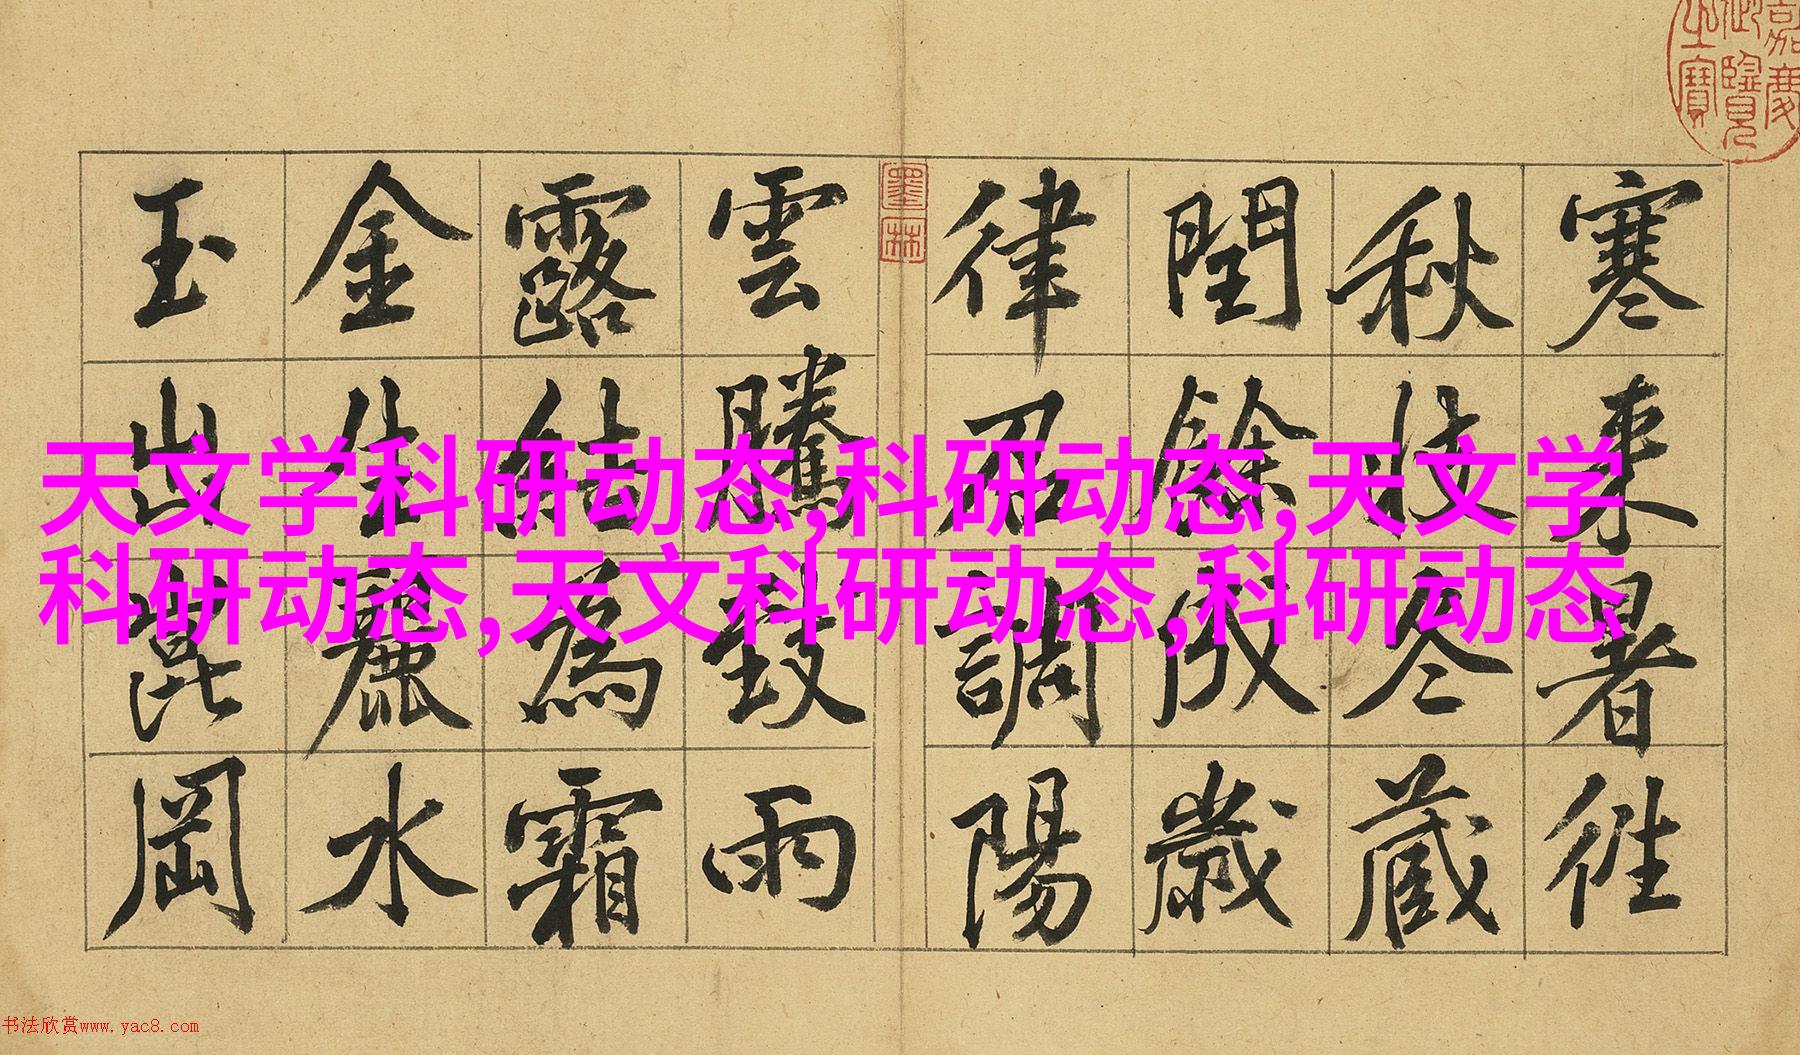 嘉慶
御覽
之寶
寒來暑徃
秋收冬蔵
閏餘成歲
律召調陽
墨林
雲騰致雨
露結為霜
金生麗水
玉出崑岡
天文学科研动态,科研动态,天文学
科研动态,天文科研动态,科研动态
书法欣赏www.yac8.com